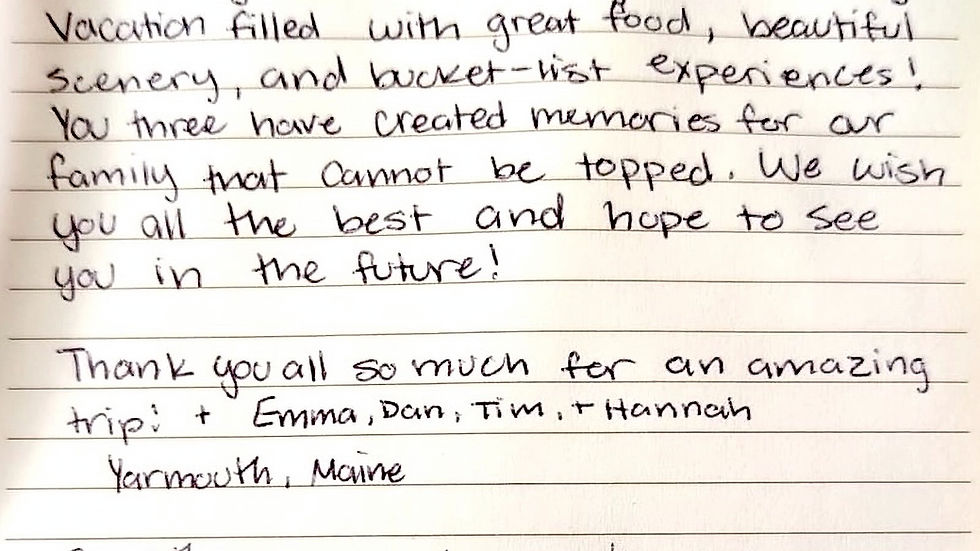 Vacation filled with great food, beautiful
scenery, and bucket-list experiences!
You three have created memories for our
family that cannot be topped. We wish
you all the best and hope to see
you in the future!
Thank you all so much for an amazing
trip! + Emma, Dan, Tim, + Hannah
Yarmouth, Maine